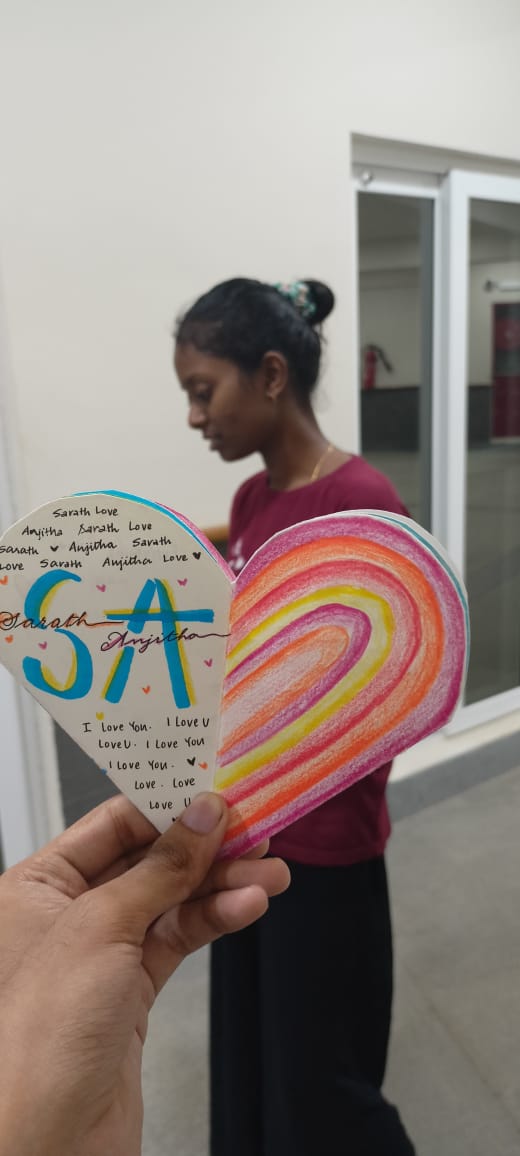 Sarath Love
Anjitha Sarath Love
Sarath ♥ Anjitha Sarath
Love Sarath Anjitha Love ♥
SA
Sarath
Anjitha
I Love You. I Love U
Love U. I Love You
I Love You. ♥
Love. Love
Love U